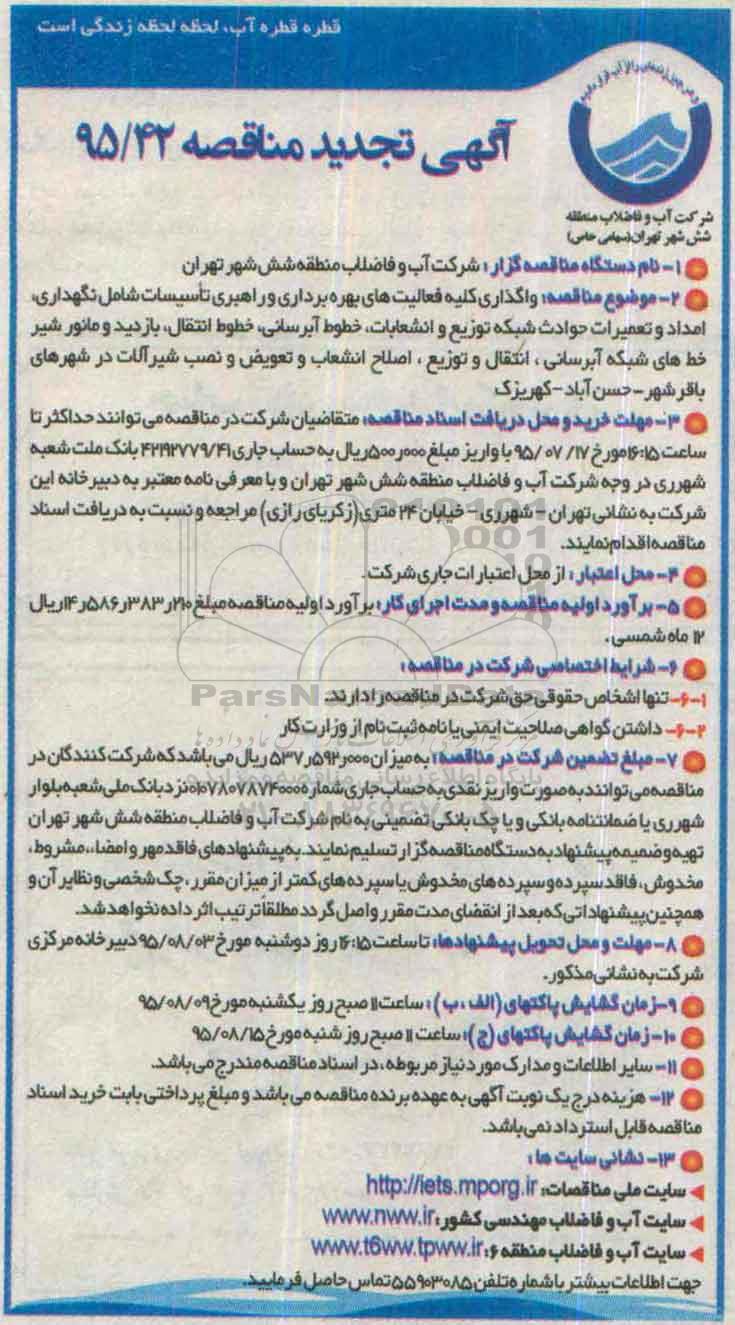 قطره قطره آب، لحظه لحظه زندگی است
آگهی تجدید مناقصه ۹۵/۴۲
شرکت آب و فاضلاب منطقه
شش شهر تهران (سهامی خاص)
۱- نام دستگاه مناقصه گزار: شرکت آب و فاضلاب منطقه شش شهر تهران
۲- موضوع مناقصه: واگذاری کلیه فعالیت های بهره برداری و راهبری تأسیسات شامل نگهداری،
امداد و تعمیرات حوادث شبکه توزیع و انشعابات، خطوط آبرسانی، خطوط انتقال، بازدید و مانور شیر
خط های شبکه آبرسانی، انتقال و توزیع، اصلاح انشعاب و تعویض و نصب شیرآلات در شهرهای
باقر شهر - حسن آباد - کهریزک
۳- مهلت خرید و محل دریافت اسناد مناقصه: متقاضیان شرکت در مناقصه می توانند حداکثر تا
ساعت ۱۶:۱۵ مورخ ۹۵/۰۷/۱۷ با واریز مبلغ ۵۰۰ر۰۰۰ ریال به حساب جاری ۴۲۱۹۲۷۷۹/۴۱ بانک ملت شعبه
شهرری در وجه شرکت آب و فاضلاب منطقه شش شهر تهران و با معرفی نامه معتبر به دبیرخانه این
شرکت به نشانی تهران - شهرری - خیابان ۲۴ متری (زکریای رازی) مراجعه و نسبت به دریافت اسناد
مناقصه اقدام نمایند.
۴- محل اعتبار: از محل اعتبارات جاری شرکت.
۵- برآورد اولیه مناقصه و مدت اجرای کار: برآورد اولیه مناقصه مبلغ ۱۴ر۵۸۶ر۳۸۳ر۲۱۰ ریال
۱۲ ماه شمسی.
۶- شرایط اختصاصی شرکت در مناقصه:
۶-۱- تنها اشخاص حقوقی حق شرکت در مناقصه را دارند.
۶-۲- داشتن گواهی صلاحیت ایمنی یا نامه ثبت نام از وزارت کار
۷- مبلغ تضمین شرکت در مناقصه: به میزان ۵۳۷ر۵۹۲ر۰۰۰ ریال می باشد که شرکت کنندگان در
مناقصه می توانند به صورت واریز نقدی به حساب جاری شماره ۰۱۰۷۸۰۷۸۷۴۰۰۰ نزد بانک ملی شعبه بلوار
شهرری یا ضمانتنامه بانکی و یا چک بانکی تضمینی به نام شرکت آب و فاضلاب منطقه شش شهر تهران
تهیه و ضمیمه پیشنهاد به دستگاه مناقصه گزار تسلیم نمایند. به پیشنهادهای فاقد مهر و امضاء، مشروط،
مخدوش، فاقد سپرده و سپرده های مخدوش یا سپرده های کمتر از میزان مقرر، چک شخصی و نظایر آن و
همچنین پیشنهاداتی که بعد از انقضای مدت مقرر واصل گردد مطلقاً ترتیب اثر داده نخواهد شد.
۸- مهلت و محل تحویل پیشنهادها: تا ساعت ۱۶:۱۵ روز دوشنبه مورخ ۹۵/۰۸/۰۳ دبیرخانه مرکزی
شرکت به نشانی مذکور.
۹- زمان گشایش پاکتهای (الف، ب): ساعت ۱۱ صبح روز یکشنبه مورخ ۹۵/۰۸/۰۹
۱۰- زمان گشایش پاکتهای (ج): ساعت ۱۱ صبح روز شنبه مورخ ۹۵/۰۸/۱۵
۱۱- سایر اطلاعات و مدارک مورد نیاز مربوطه، در اسناد مناقصه مندرج می باشد.
۱۲- هزینه درج یک نوبت آگهی به عهده برنده مناقصه می باشد و مبلغ پرداختی بابت خرید اسناد
مناقصه قابل استرداد نمی باشد.
۱۳- نشانی سایت ها:
سایت ملی مناقصات: http://iets.mporg.ir
سایت آب و فاضلاب مهندسی کشور: www.nww.ir
سایت آب و فاضلاب منطقه ۶: www.t6ww.tpww.ir
جهت اطلاعات بیشتر با شماره تلفن ۵۵۹۰۳۰۸۵ تماس حاصل فرمایید.